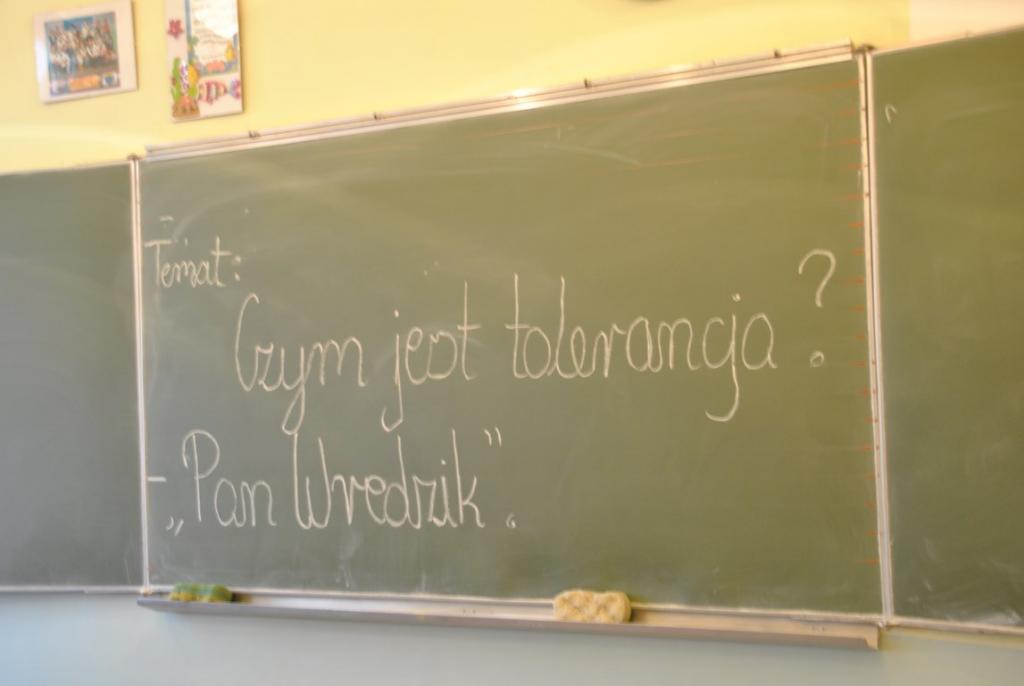 Temat:
Czym jest tolerancja?
- „Pan Wredzik".